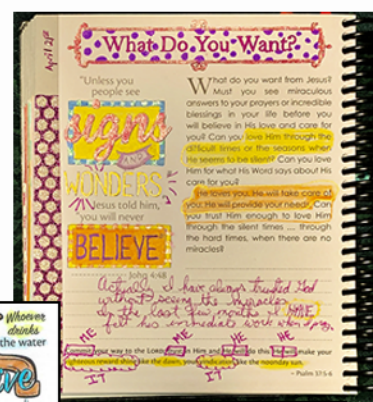 April 21st
What Do You Want?
"Unless you
people see
signs
AND
WONDERS,"
Jesus told him,
"you will never
BELIEVE
John 4:48
What do you want from Jesus?
Must you see miraculous
answers to your prayers or incredible
blessings in your life before you
will believe in His love and care for
you? Can you love Him through the
difficult times or the seasons when
He seems to be silent? Can you love
Him for what His Word says about His
care for you?
He loves you. He will take care of
you. He will provide your needs. Can
you trust Him enough to love Him
through the silent times .... through
the hard times, when there are no
miracles?
Actually I have always trusted God
without seeing the miracles
In the last few months I HAVE
felt his immediate work when I pray.
ME ME HE HE
your way to the LORD in Him and will do this He will make your
righteous reward shine like the dawn, your vindication like the noonday sun.
IT IT
~ Psalm 37:5-6
Whoever
drinks
the water